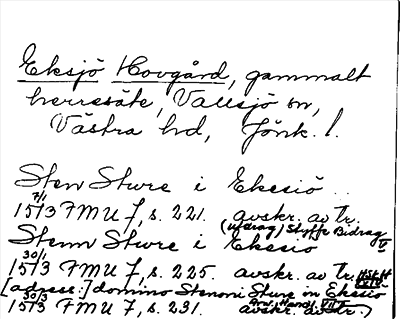 Eksjö Hovgård, gammalt
herresäte, Vallsjö sn,
Västra hd, Jönk. l.
Sten Sture i Ekesiö ..
7/1
1513 FMU 7, s. 221. avskr. av tr.
(utdrag) Styffe Bidrag V
Stenn Sture i Ekesiö
30/1
1513 FMU 7, s. 225. avskr. av tr.
[adress:] domino Stenoni Sture in Ekesiö
30/3
1513 FMU 7, s. 231. avskr. av tr.)